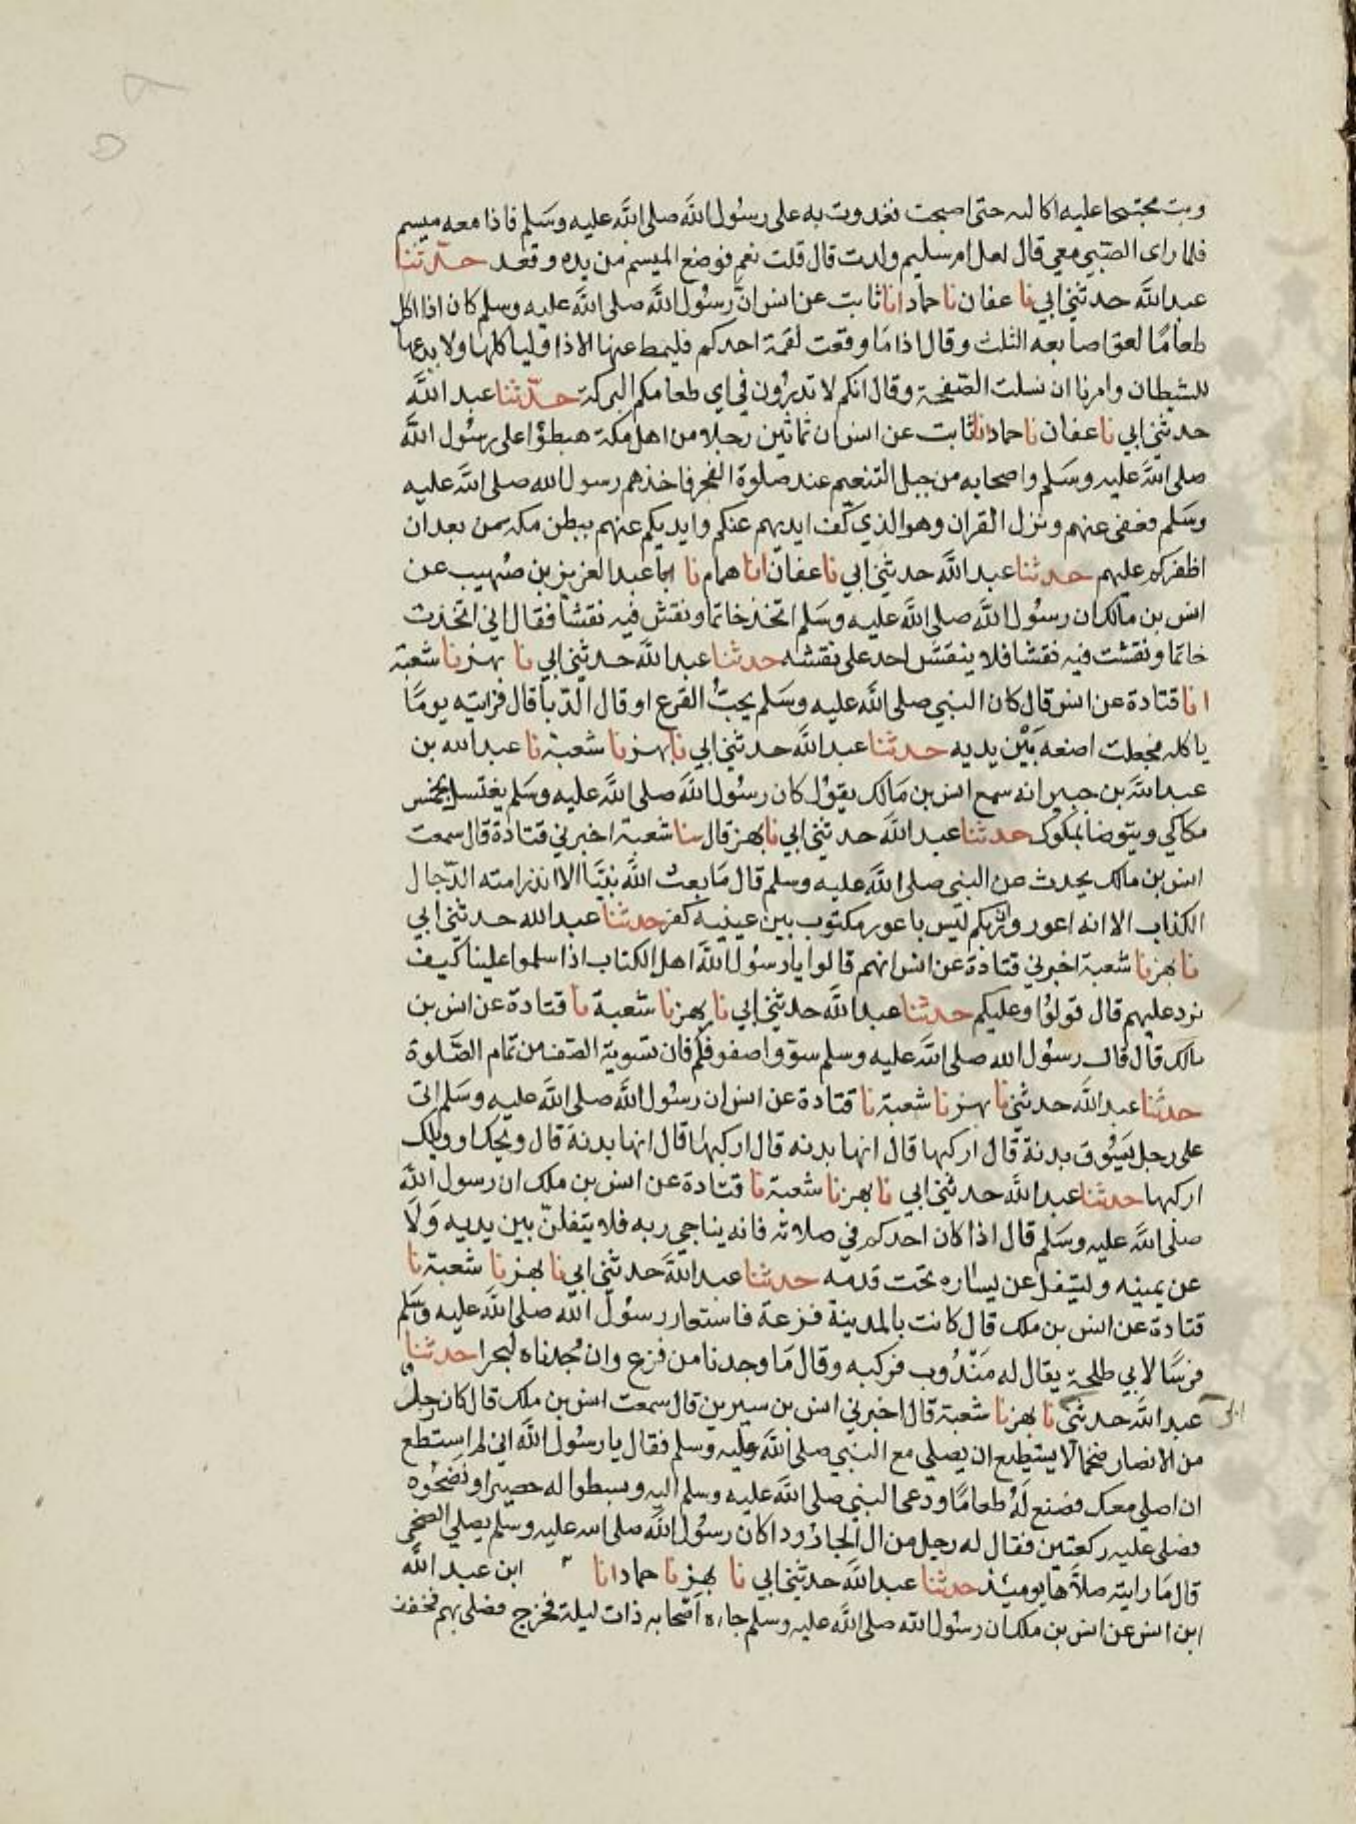 وبت مجتنحا عليه اكالبه حتى اصبحت فغدوت به على رسول الله صلى الله عليه وسلم فاذا معه ميسم
فلما راى الصبي معي قال لعل ام سليم ولدت قال قلت نعم فوضع الميسم من يده وقعد حدثنا
عبد الله حدثني ابي نا عفان نا حماد انا ثابت عن انس ان رسول الله صلى الله عليه وسلم كان اذا اكل
طعاما لعق اصابعه الثلث وقال اذا ما وقعت لقمة احدكم فليمط عنها الاذا وليا كلها ولا يدعها
للشيطان وامرنا ان نسلت الصفحة وقال انكم لا تدرون في اي طعامكم البركة حدثنا عبد الله
حدثني ابي نا عفان نا حماد انا ثابت عن انس ان ثمانين رجلا من اهل مكة هبطوا على رسول الله
صلى الله عليه وسلم واصحابه من جبل التنعيم عند صلوة الفجر فاخذهم رسول الله صلى الله عليه
وسلم فعفى عنهم ونزل القران وهو الذي كف ايديهم عنكم وايديكم عنهم ببطن مكة من بعد ان
اظفركم عليهم حدثنا عبد الله حدثني ابي نا عفان انا همام نا عبد العزيز بن صهيب عن
انس بن مالك ان رسول الله صلى الله عليه وسلم اتخذ خاتما ونقش فيه نقشا فقال اني اتخذت
خاتما ونقشت فيه نقشا فلا ينقش احد على نقشه حدثنا عبد الله حدثني ابي نا بهز نا شعبة
انا قتادة عن انس قال كان النبي صلى الله عليه وسلم يحب القرع او قال الدبا قال فرايته يوما
ياكله فجعلت اضعه بين يديه حدثنا عبد الله حدثني ابي نا بهز نا شعبة نا عبد الله بن
عبد الله بن جبير انه سمع انس بن مالك يقول كان رسول الله صلى الله عليه وسلم يغتسل بخمس
مكاكي ويتوضا بمكوك حدثنا عبد الله حدثني ابي نا بهز قال ثنا شعبة اخبرني قتادة قال سمعت
انس بن مالك يحدث عن النبي صلى الله عليه وسلم قال ما بعث الله نبيا الا انذر امته الدجال
الكذاب الا انه اعور وان ربكم ليس باعور مكتوب بين عينيه كفر حدثنا عبد الله حدثني ابي
نا بهز نا شعبة اخبرني قتادة عن انس انهم قالوا يا رسول الله اهل الكتاب اذا سلموا علينا كيف
نرد عليهم قال قولوا وعليكم حدثنا عبد الله حدثني ابي نا بهز نا شعبة نا قتادة عن انس بن
مالك قال قال رسول الله صلى الله عليه وسلم سووا صفوفكم فان تسوية الصف من تمام الصلوة
حدثنا عبد الله حدثني نا بهز نا شعبة نا قتادة عن انس ان رسول الله صلى الله عليه وسلم اتى
على رجل يسوق بدنة قال اركبها قال انها بدنه قال اركبها قال انها بدنة قال ويحك او ويلك
اركبها حدثنا عبد الله حدثني ابي نا بهز نا شعبة نا قتادة عن انس بن ملك ان رسول الله
صلى الله عليه وسلم قال اذا كان احدكم في صلاته فانه يناجي ربه فلا يتفلن بين يديه ولا
عن يمينه وليتفل عن يساره تحت قدمه حدثنا عبد الله حدثني ابي نا بهز نا شعبة نا
قتادة عن انس بن ملك قال كانت بالمدينة فزعة فاستعار رسول الله صلى الله عليه وسلم
فرسا لابي طلحة يقال له مندوب فركبه وقال ما وجدنا من فزع وان وجدناه لبحرا حدثنا
عبد الله حدثني ابي نا بهز نا شعبة قال اخبرني انس بن سيرين قال سمعت انس بن ملك قال كان رجل
من الانصار ضخما لا يستطيع ان يصلي مع النبي صلى الله عليه وسلم فقال يا رسول الله اني لم استطع
ان اصلي معك فصنع له طعاما ودعى النبي صلى الله عليه وسلم اليه وبسطوا له حصيرا ونضحوه
فصلى عليه ركعتين فقال له رجل من ال الجارود اكان رسول الله صلى الله عليه وسلم يصلي الضحى
قال ما رايته صلاها يومئذ حدثنا عبد الله حدثني ابي نا بهز نا حماد انا ابن عبد الله
ابن انس عن انس بن ملك ان رسول الله صلى الله عليه وسلم جاءه اصحابه ذات ليلة فخرج فصلى بهم فخفف